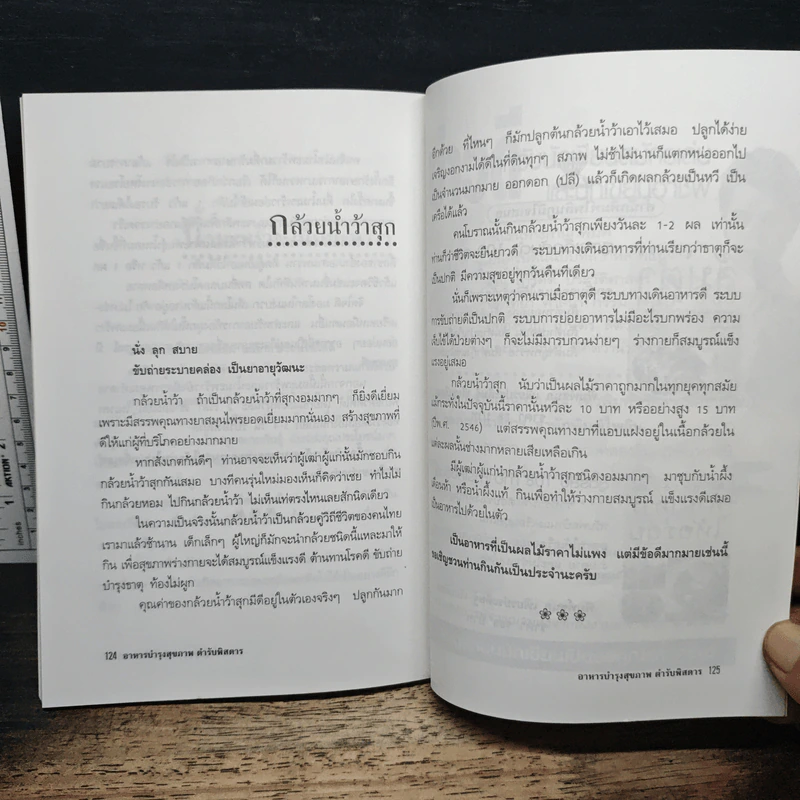 กล้วยน้ำว้าสุก
นั่ง ลุก สบาย
ขับถ่ายระบายคล่อง เป็นยาอายุวัฒนะ
กล้วยน้ำว้า ถ้าเป็นกล้วยน้ำว้าที่สุกงอมมากๆ ก็ยิ่งดีเยี่ยม
เพราะมีสรรพคุณทางยาสมุนไพรยอดเยี่ยมมากนั่นเอง สร้างสุขภาพที่
ดีให้แก่ผู้ที่บริโภคอย่างมากมาย
หากสังเกตกันดีๆ ท่านอาจจะเห็นว่าผู้เฒ่าผู้แก่นั้นมักชอบกิน
กล้วยน้ำว้าสุกกันเสมอ บางทีคนรุ่นใหม่มองเห็นก็คิดว่าเชย ทำไมไม่
กินกล้วยหอม ไปกินกล้วยน้ำว้า ไม่เห็นเท่ตรงไหนเลยสักนิดเดียว
ในความเป็นจริงนั้นกล้วยน้ำว้าเป็นกล้วยคู่วิถีชีวิตของคนไทย
เรามาแล้วช้านาน เด็กเล็กๆ ผู้ใหญ่ก็มักจะนำกล้วยชนิดนี้แหละมาให้
กิน เพื่อสุขภาพร่างกายจะได้สมบูรณ์แข็งแรงดี ต้านทานโรคดี ขับถ่าย
บำรุงธาตุ ท้องไม่ผูก
คุณค่าของกล้วยน้ำว้าสุกมีดีอยู่ในตัวเองจริงๆ ปลูกกันมาก
124 อาหารบำรุงสุขภาพ ตำรับพิสดาร
อีกด้วย ที่ไหนๆ ก็มักปลูกต้นกล้วยน้ำว้าเอาไว้เสมอ ปลูกได้ง่าย
เจริญงอกงามได้ดีในที่ดินทุกๆ สภาพ ไม่ช้าไม่นานก็แตกหน่อออกไป
เป็นจำนวนมากมาย ออกดอก (ปลี) แล้วก็เกิดผลกล้วยเป็นหวี เป็น
เครือได้แล้ว
คนโบราณนั้นกินกล้วยน้ำว้าสุกเพียงวันละ 1-2 ผล เท่านั้น
ท่านก็ว่าชีวิตจะยืนยาวดี ระบบทางเดินอาหารที่ท่านเรียกว่าธาตุก็จะ
เป็นปกติ มีความสุขอยู่ทุกวันคืนทีเดียว
นั่นก็เพราะเหตุว่าคนเราเมื่อธาตุดี ระบบทางเดินอาหารดี ระบบ
การขับถ่ายดีเป็นปกติ ระบบการย่อยอาหารไม่มีอะไรบกพร่อง ความ
เจ็บไข้ได้ป่วยต่างๆ ก็จะไม่มีมารบกวนง่ายๆ ร่างกายก็สมบูรณ์แข็ง
แรงอยู่เสมอ
กล้วยน้ำว้าสุก นับว่าเป็นผลไม้ราคาถูกมากในทุกยุคทุกสมัย
แม้กระทั่งในปัจจุบันนี้ราคานั้นหวีละ 10 บาท หรืออย่างสูง 15 บาท
(ปีพ.ศ. 2546) แต่สรรพคุณทางยาที่แอบแฝงอยู่ในเนื้อกล้วยใน
แต่ละผลนั้นช่างมากหลายเสียเหลือเกิน
มีผู้เฒ่าผู้แก่นำกล้วยน้ำว้าสุกชนิดงอมมากๆ มาชุบกับน้ำผึ้ง
เดือนห้า หรือน้ำผึ้งแท้ กินเพื่อทำให้ร่างกายสมบูรณ์ แข็งแรงดีเสมอ
เป็นอาหารไปด้วยในตัว
เป็นอาหารที่เป็นผลไม้ราคาไม่แพง แต่มีข้อดีมากมายเช่นนี้
ขอเชิญชวนท่านกินกันเป็นประจำนะครับ
อาหารบำรุงสุขภาพ ตำรับพิสดาร 125